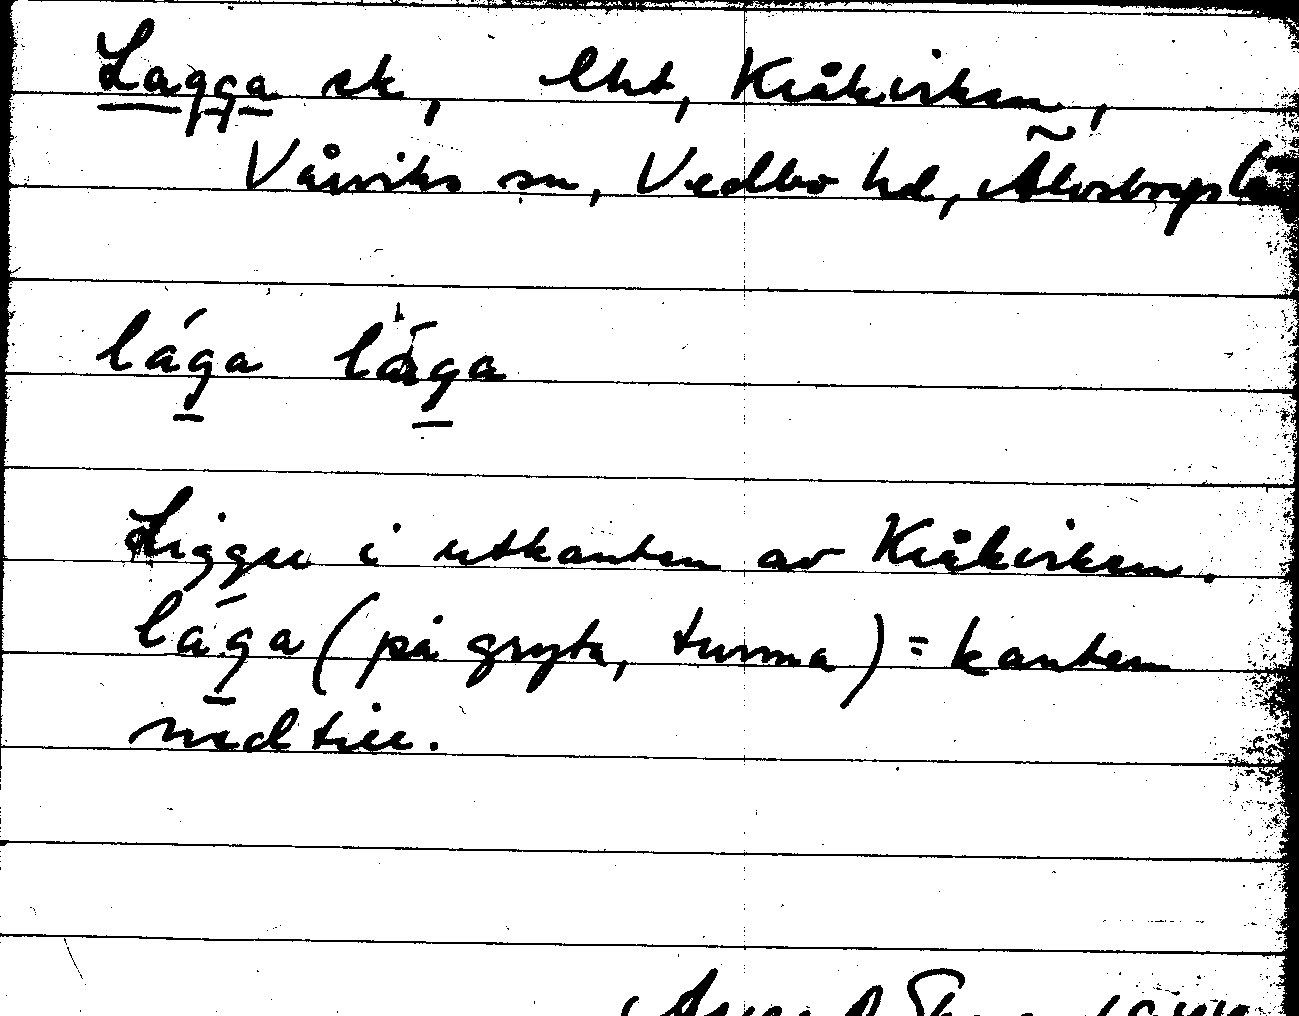 Lagga sk, lht, Kråkviken,
Vårviks sn, Vedbo hd, Älvsborgs lä
lága lága
Ligger i utkanten av Kråkviken.
lága (på gryta, tunna) = kanten
nedtill.